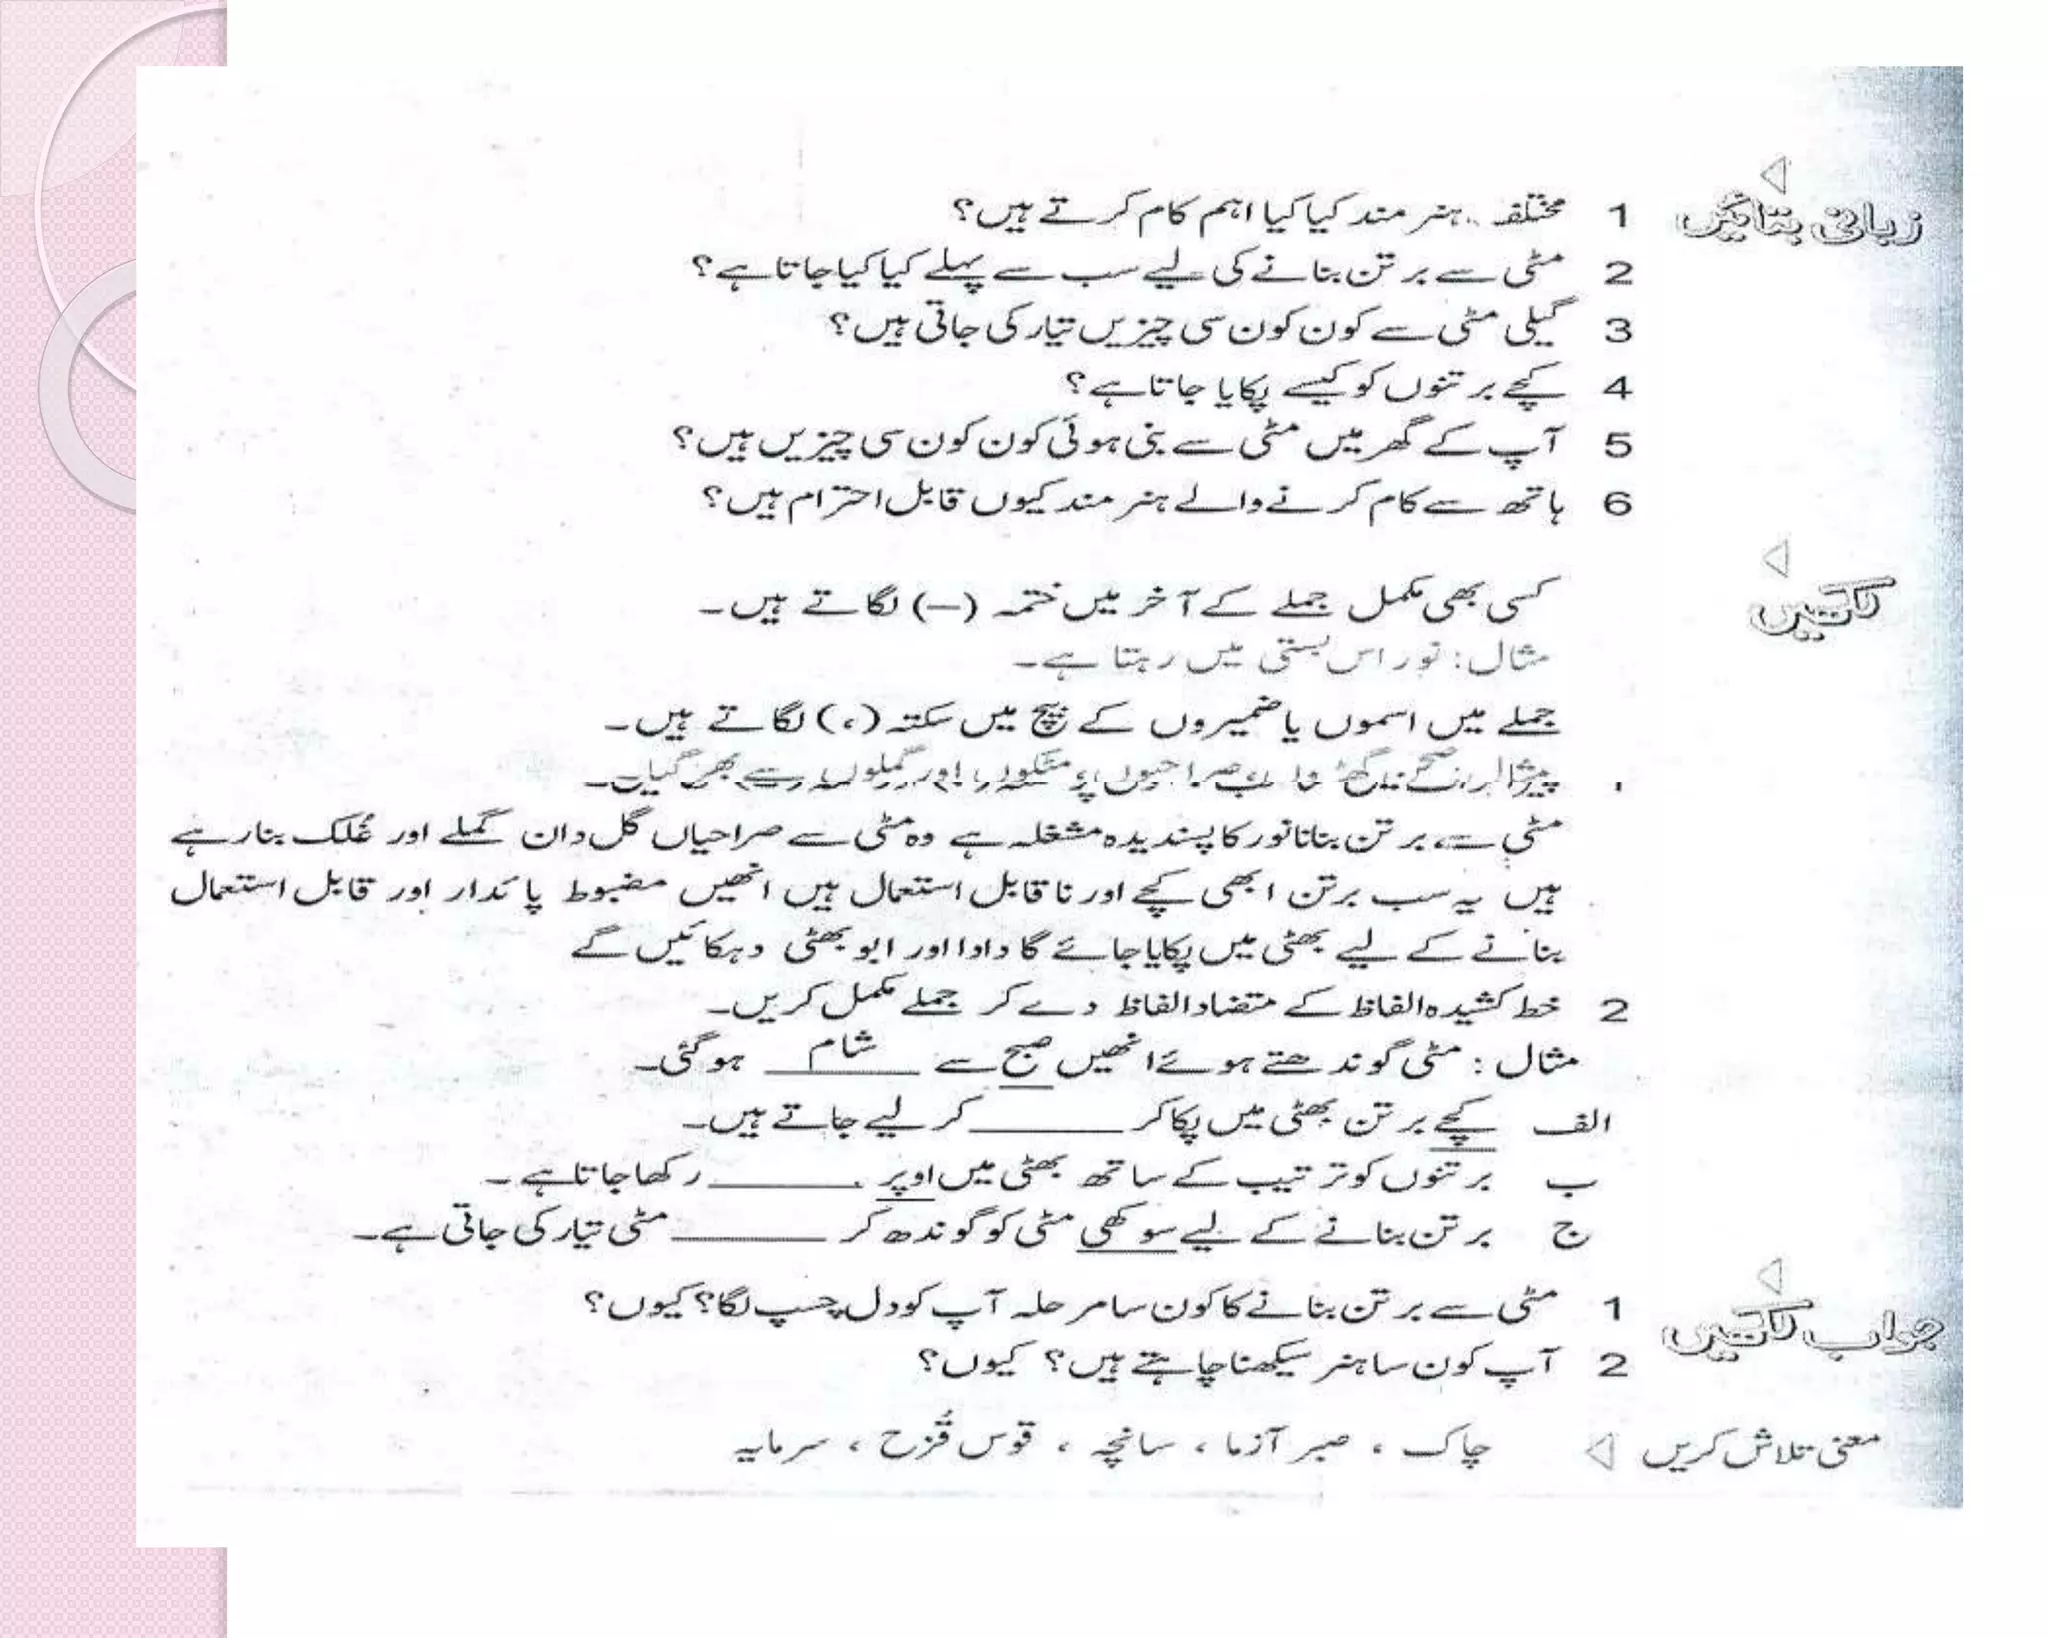 زبانی بتائیں
1 مختلف ہنر مند کیا کیا اہم کام کرتے ہیں؟
2 مٹی سے برتن بنانے کی لیے سب سے پہلے کیا کیا جاتا ہے؟
3 گیلی مٹی سے کون کون سی چیزیں تیار کی جاتی ہیں؟
4 کچے برتنوں کو کیسے پکایا جاتا ہے؟
5 آپ کے گھر میں مٹی سے بنی ہوئی کون کون سی چیزیں ہیں؟
6 ہاتھ سے کام کرنے والے ہنر مند کیوں قابل احترام ہیں؟
لکھیں
کسی بھی مکمل جملے کے آخر میں ختمہ (–) لگاتے ہیں۔
مثال: نور اس بستی میں رہتا ہے۔
جملے میں اسموں یا ضمیروں کے بیچ میں سکتہ (،) لگاتے ہیں۔
مٹی سے برتن بنانا نور کا پسندیدہ مشغلہ ہے وہ مٹی سے صراحیاں گل دان گملے اور غلک بنا رہے
ہیں یہ سب برتن ابھی کچے اور نا قابل استعمال ہیں انھیں مضبوط پائدار اور قابل استعمال
بنانے کے لیے بھٹی میں پکایا جائے گا دادا اور ابو بھٹی دہکائیں گے
2 خط کشیدہ الفاظ کے متضاد الفاظ دے کر جملے مکمل کریں۔
مثال : مٹی گوندھتے ہوئے انھیں صبح سے شام ہو گئی۔
الف کچے برتن بھٹی میں پکا کر ________ کر لیے جاتے ہیں۔
ب برتنوں کو ترتیب کے ساتھ بھٹی میں اوپر ________ رکھا جاتا ہے۔
ج برتن بنانے کے لیے سوکھی مٹی کو گوندھ کر ________ مٹی تیار کی جاتی ہے۔
جواب لکھیں
1 مٹی سے برتن بنانے کا کون سا مرحلہ آپ کو دل چسپ لگا؟ کیوں؟
2 آپ کون سا ہنر سیکھنا چاہتے ہیں؟ کیوں؟
معنی تلاش کریں چاک ، صبر آزما ، سانچہ ، قوس قُزح ، سرمایہ